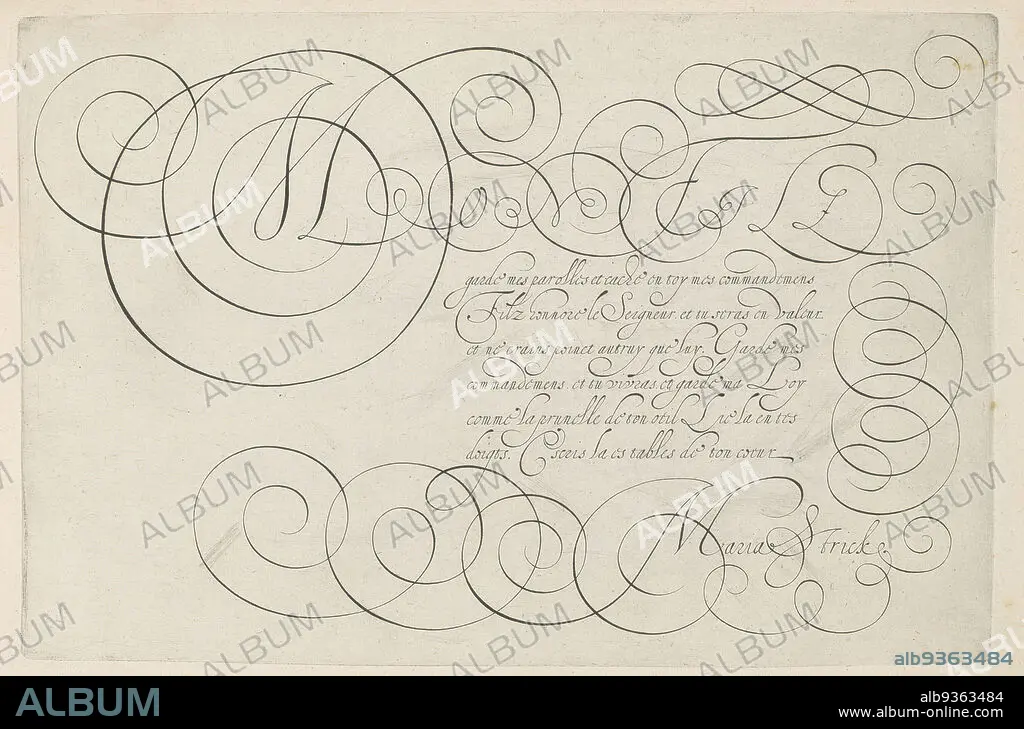 Mon Filz
garde mes parolles et cache en toy mes commandemens
Filz honnore le Seigneur et tu seras en valeur
et ne crains poinct autruy que luy. Garde mes
commandemens, et tu vivras, et garde ma Loy
comme la prunelle de ton oeil Lie la en tes
doigts, Escris la es tables de ton coeur
Maria Strick
alb9363484
ALBUM
alb9363484
www.album-online.com